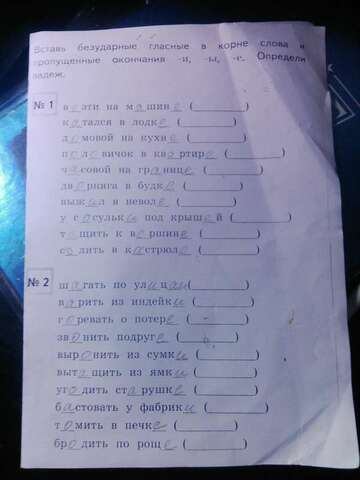 Вставь безударные гласные в корне слова и
пропущенные окончания -и, -ы, -е. Определи
падеж.
№ 1
везти на машине (_______)
катался в лодке (_______)
домовой на кухне (_______)
половичок в квартире (_______)
часовой на границе (_______)
дворняга в будке (_______)
выжил в неволе (_______)
у сосульки под крышей (_______)
тащить к вершине (_______)
солить в кастрюле (_______)
№ 2
шагать по улицаи (_______)
варить из индейки (_______)
горевать о потере (_______)
звонить подруге (_______)
выронить из сумки (_______)
вытащить из ямки (_______)
угодить старушке (_______)
бастовать у фабрики (_______)
томить в печке (_______)
бродить по роще (_______)